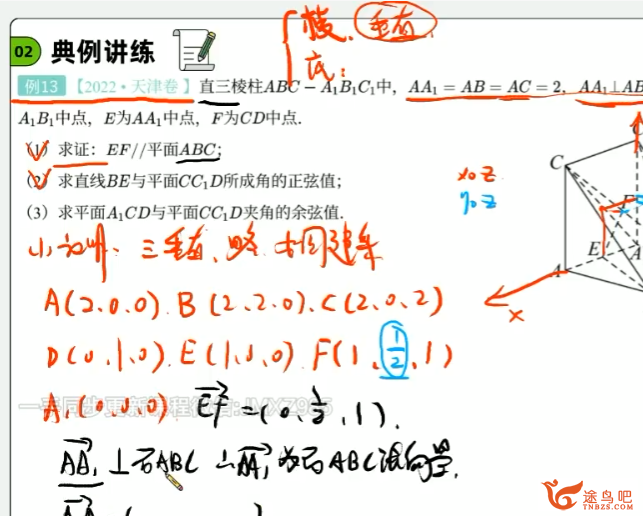 侧、垂直
底：
02 典例讲练
例13 【2022·天津卷】直三棱柱ABC－A₁B₁C₁中，AA₁＝AB＝AC＝2，AA₁⊥AB
A₁B₁中点，E为AA₁中点，F为CD中点.
(1) 求证：EF//平面ABC；
(2) 求直线BE与平面CC₁D所成角的正弦值；
(3) 求平面A₁CD与平面CC₁D夹角的余弦值.
xoz
yoz
C
F
E
A
A
x
(1) 证明：三垂直、略、如图建系
A(2,0,0) B(2,2,0) C(2,0,2)
D(0,1,0) E(1,0,0) F(1,1/2,1)
A₁(0,0,0) EF＝(0,1/2,1).
AA₁⊥面ABC ∴AA₁为面ABC法向量.
AA₁(
途鸟吧
TNBZS.COM